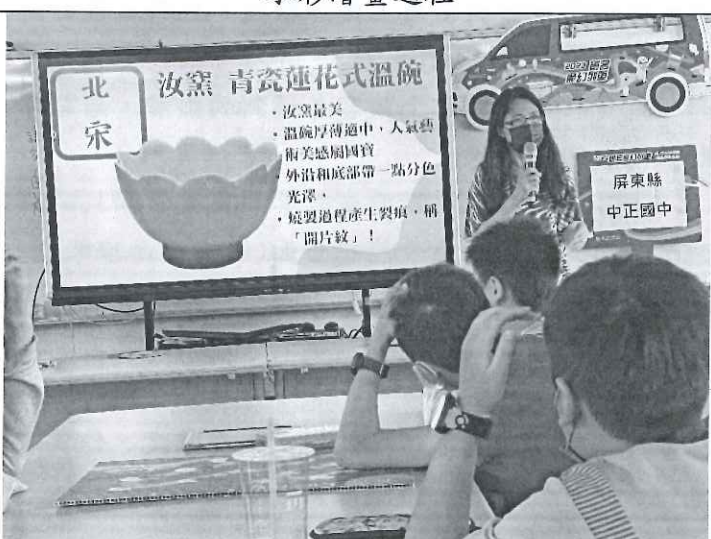 北
宋
汝窯 青瓷蓮花式溫碗
・汝窯最美
・溫碗厚薄適中，人氣藝
術美感屬國寶
・外沿和底部帶一點分色
光澤，
・燒製過程產生裂痕，稱
「開片紋」！
2023
屏東縣
中正國中